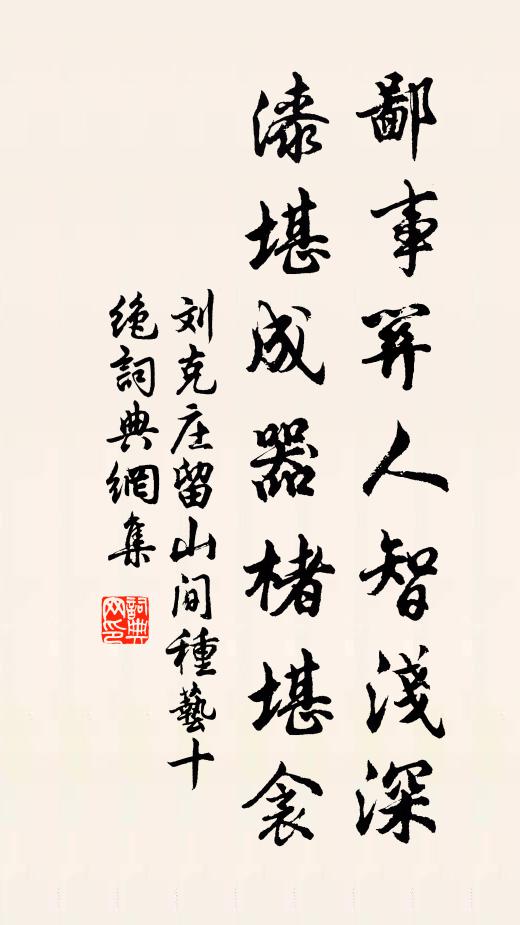 鄙事關人智淺深
漆堪成器楮堪衾
刘克庄留山間種藝十
絶詞典網集
詞典
网印